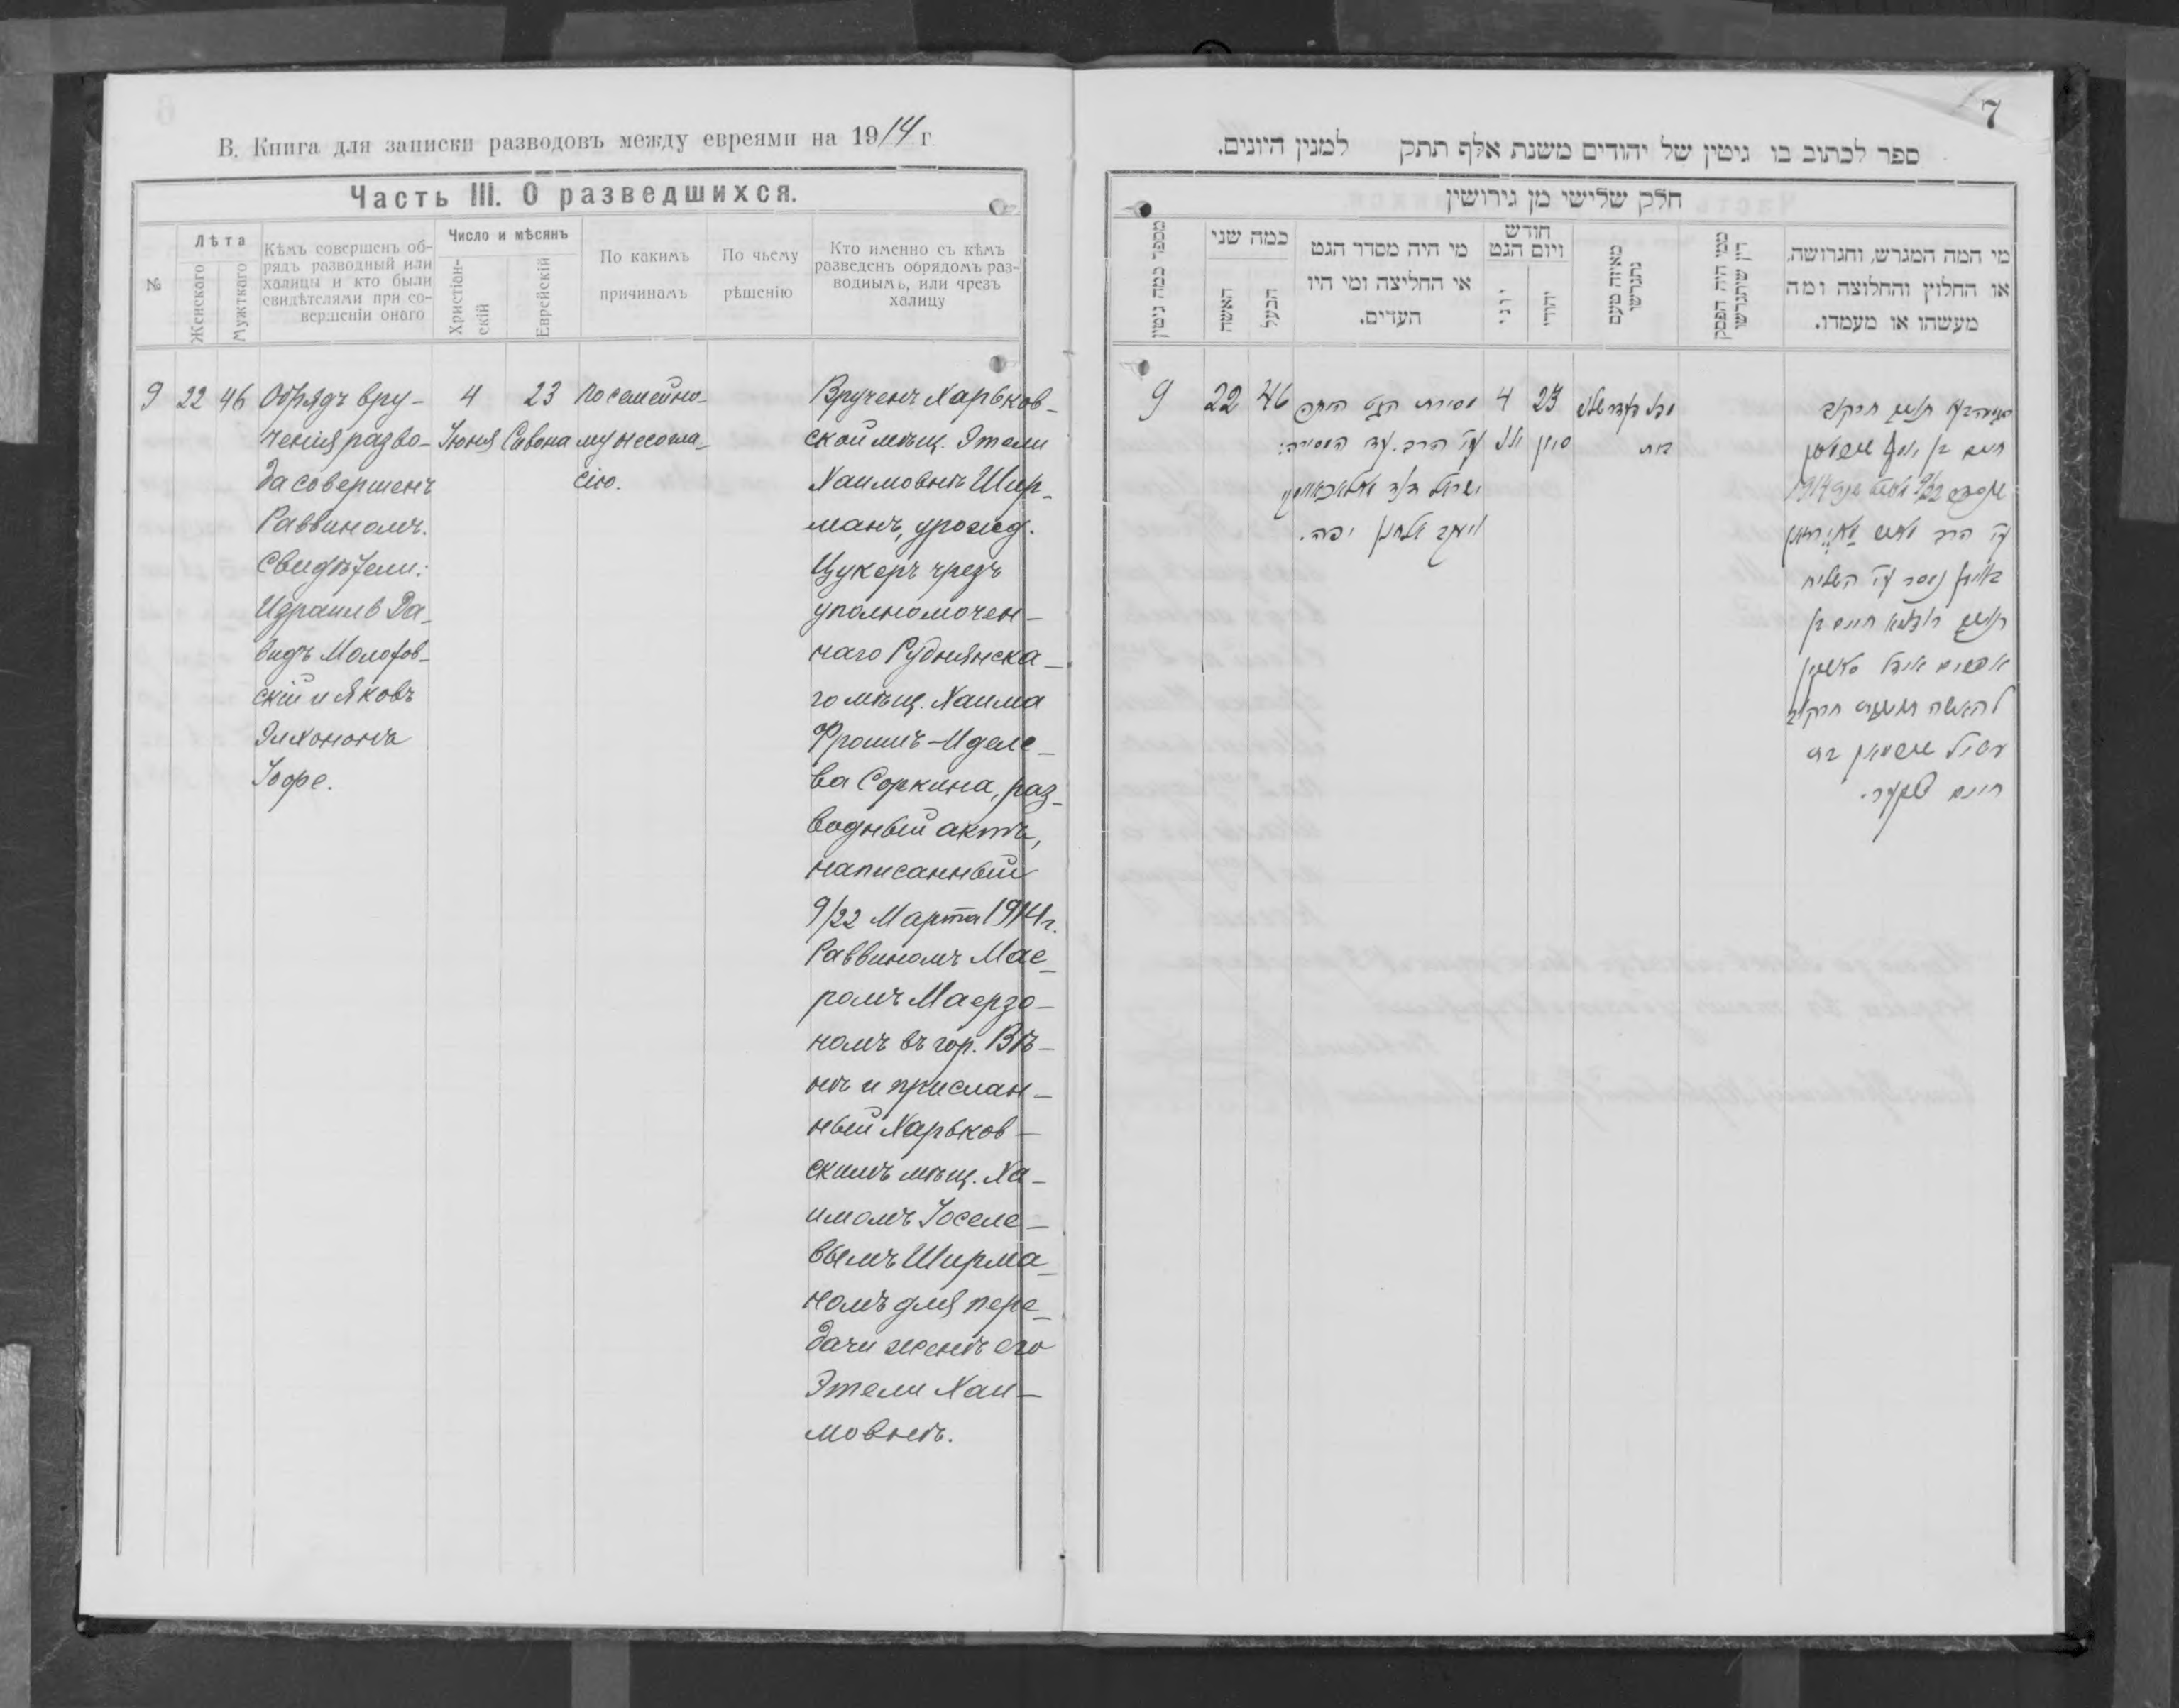 В. Книга для записки разводовъ между евреями на 1914 г
Часть III. О разведшихся.
№
Лѣта
Женскаго
Мужткаго
Кѣмъ совершенъ об-
рядъ разводный или
халицы и кто были
свидѣтелями при со-
вершеніи онаго
Число и мѣсянъ
Христіан-
скій
Еврейскій
По какимъ
причинамъ
По чьему
рѣшенію
Кто именно съ кѣмъ
разведенъ обрядомъ раз-
воднымъ, или чрезъ
халицу
9
22
46
Обрядъ вру-
ченія разво-
да совершенъ
Раввиномъ.
Свидѣтели:
Израиль Да-
видъ Молотов-
скій и Яковъ
Элхононъ
Іофе.
4
Іюня
23
Сивона
По семейно-
му несогла-
сію.
Врученъ Харьков-
ской мѣщ. Этели
Хаимовнѣ Шир-
манъ, урожд.
Цукеръ чрезъ
уполномочен-
наго Руднянска-
го мѣщ. Хаима
Фроимъ-Иделе-
ва Соркина, раз-
водный актъ,
написанный
9/22 Марта 1914 г.
Раввиномъ Мае-
ромъ Маерзо-
номъ въ гор. Вѣ-
нѣ и прислан-
ный Харьков-
скимъ мѣщ. Ха-
имомъ Іоселе-
вымъ Ширма-
номъ для пере-
дачи женѣ его
Этели Хаи-
мовнѣ.
7
ספר לכתוב בו גיטין של יהודים משנת אלף תתק למנין היונים.
חלק שלישי מן גירושין
מספר כמה גיטין
כמה שני
האשה
הבעל
מי היה מסדר הגט
או החליצה ומי היו
העדים.
חודש
ויום הגט
יוני
יהודי
מאיזה טעם
נתגרשו
ממי היה הפסק
דין שיתגרשו
מי המה המגרש, והגרושה,
או החלוץ והחלוצה ומה
מעשהו או מעמדו.
9
22
46
מסירת הגט היתה
ע״י הרב. עדי המסירה:
ישראל דוד
יעקב אלחנן יפה.
4
23
סיון
חיים בן יוסף
9/22 1914
ע״י הרב
ע״י השליח
חיים בן
להאשה
חיים צוקער.